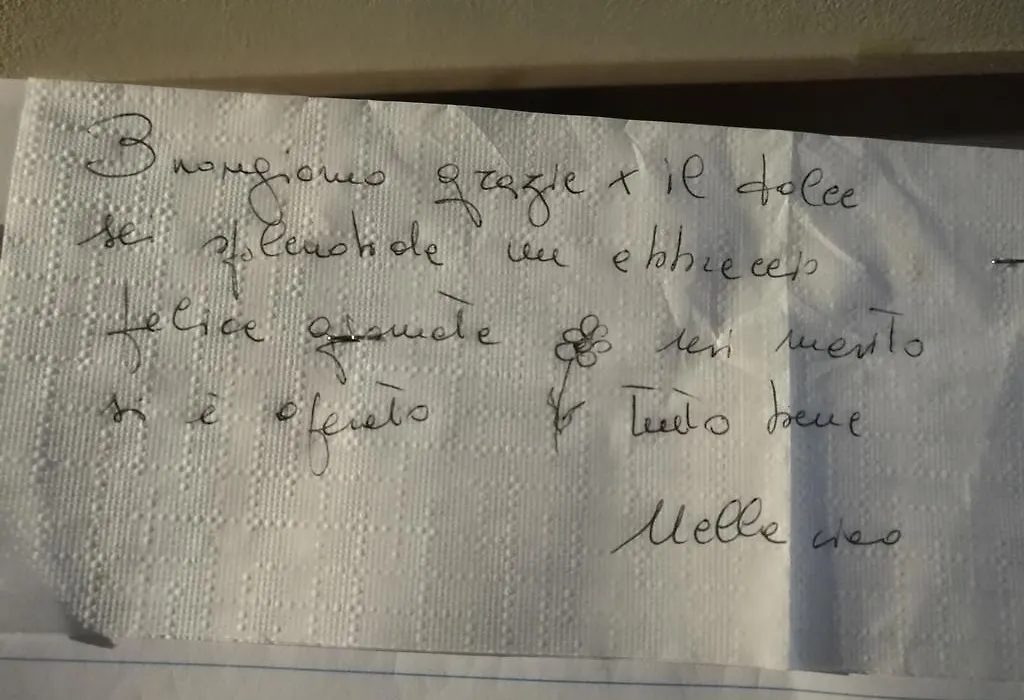 Buongiorno grazie x il dolce
sei splendide un abbraccio
felice giornata mio marito
si è operato Tutto bene
ciao